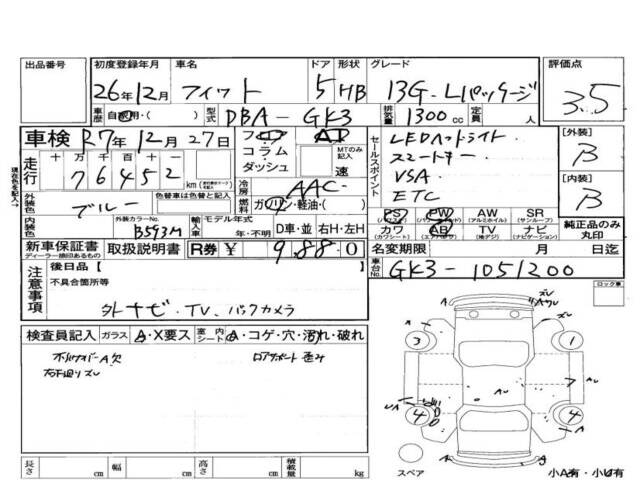 出品番号 初度登録年月 車名 ドア 形状 グレード 評価点
26年12月 フィット 5 HB 13G-Lパッケージ 3.5
車歴 自家用・( ) 型式 DBA-GK3 排気量 1300cc 定員 人
車検 R7年12月27日 フロア AT
コラム・ダッシュ MTのみ記入 速
走行 十万千百十一
76452 km
冷房 AAC
燃料 ガソリン・軽油・( )
セールスポイント LEDヘッドライト・
スマートキー・
VSA・
ETC
[外装] B
[内装] B
現在色を記入→
外装色 ブルー 色替車は色替と記入
内装色 外装カラーNo. B593M 輸入車 モデル年式 年・不明 D車・並 右H・左H
PS (パワステ) PW (パワーウィンド) AW (アルミホイル) SR (サンルーフ) 純正品のみ丸印
カワ (カワシート) AB (エアバッグ) TV (地デジ) ナビ (ナビゲーション)
新車保証書 ディーラー捺印あるもの 取扱説明書 R券 ¥ 9,880
名変期限 月 日迄
車台No. GK3-1051200
注意事項 後日品【 】
不具合箇所等
外ナビ・TV、バックカメラ
ロック車
検査員記入 ガラス A・X要ス 室内シート A・コゲ・穴・汚れ・破れ
ロアサポート歪み
3 1
4 4
スペア 小A有・小U有
長さ cm 幅 cm 高さ cm 積載量 kg